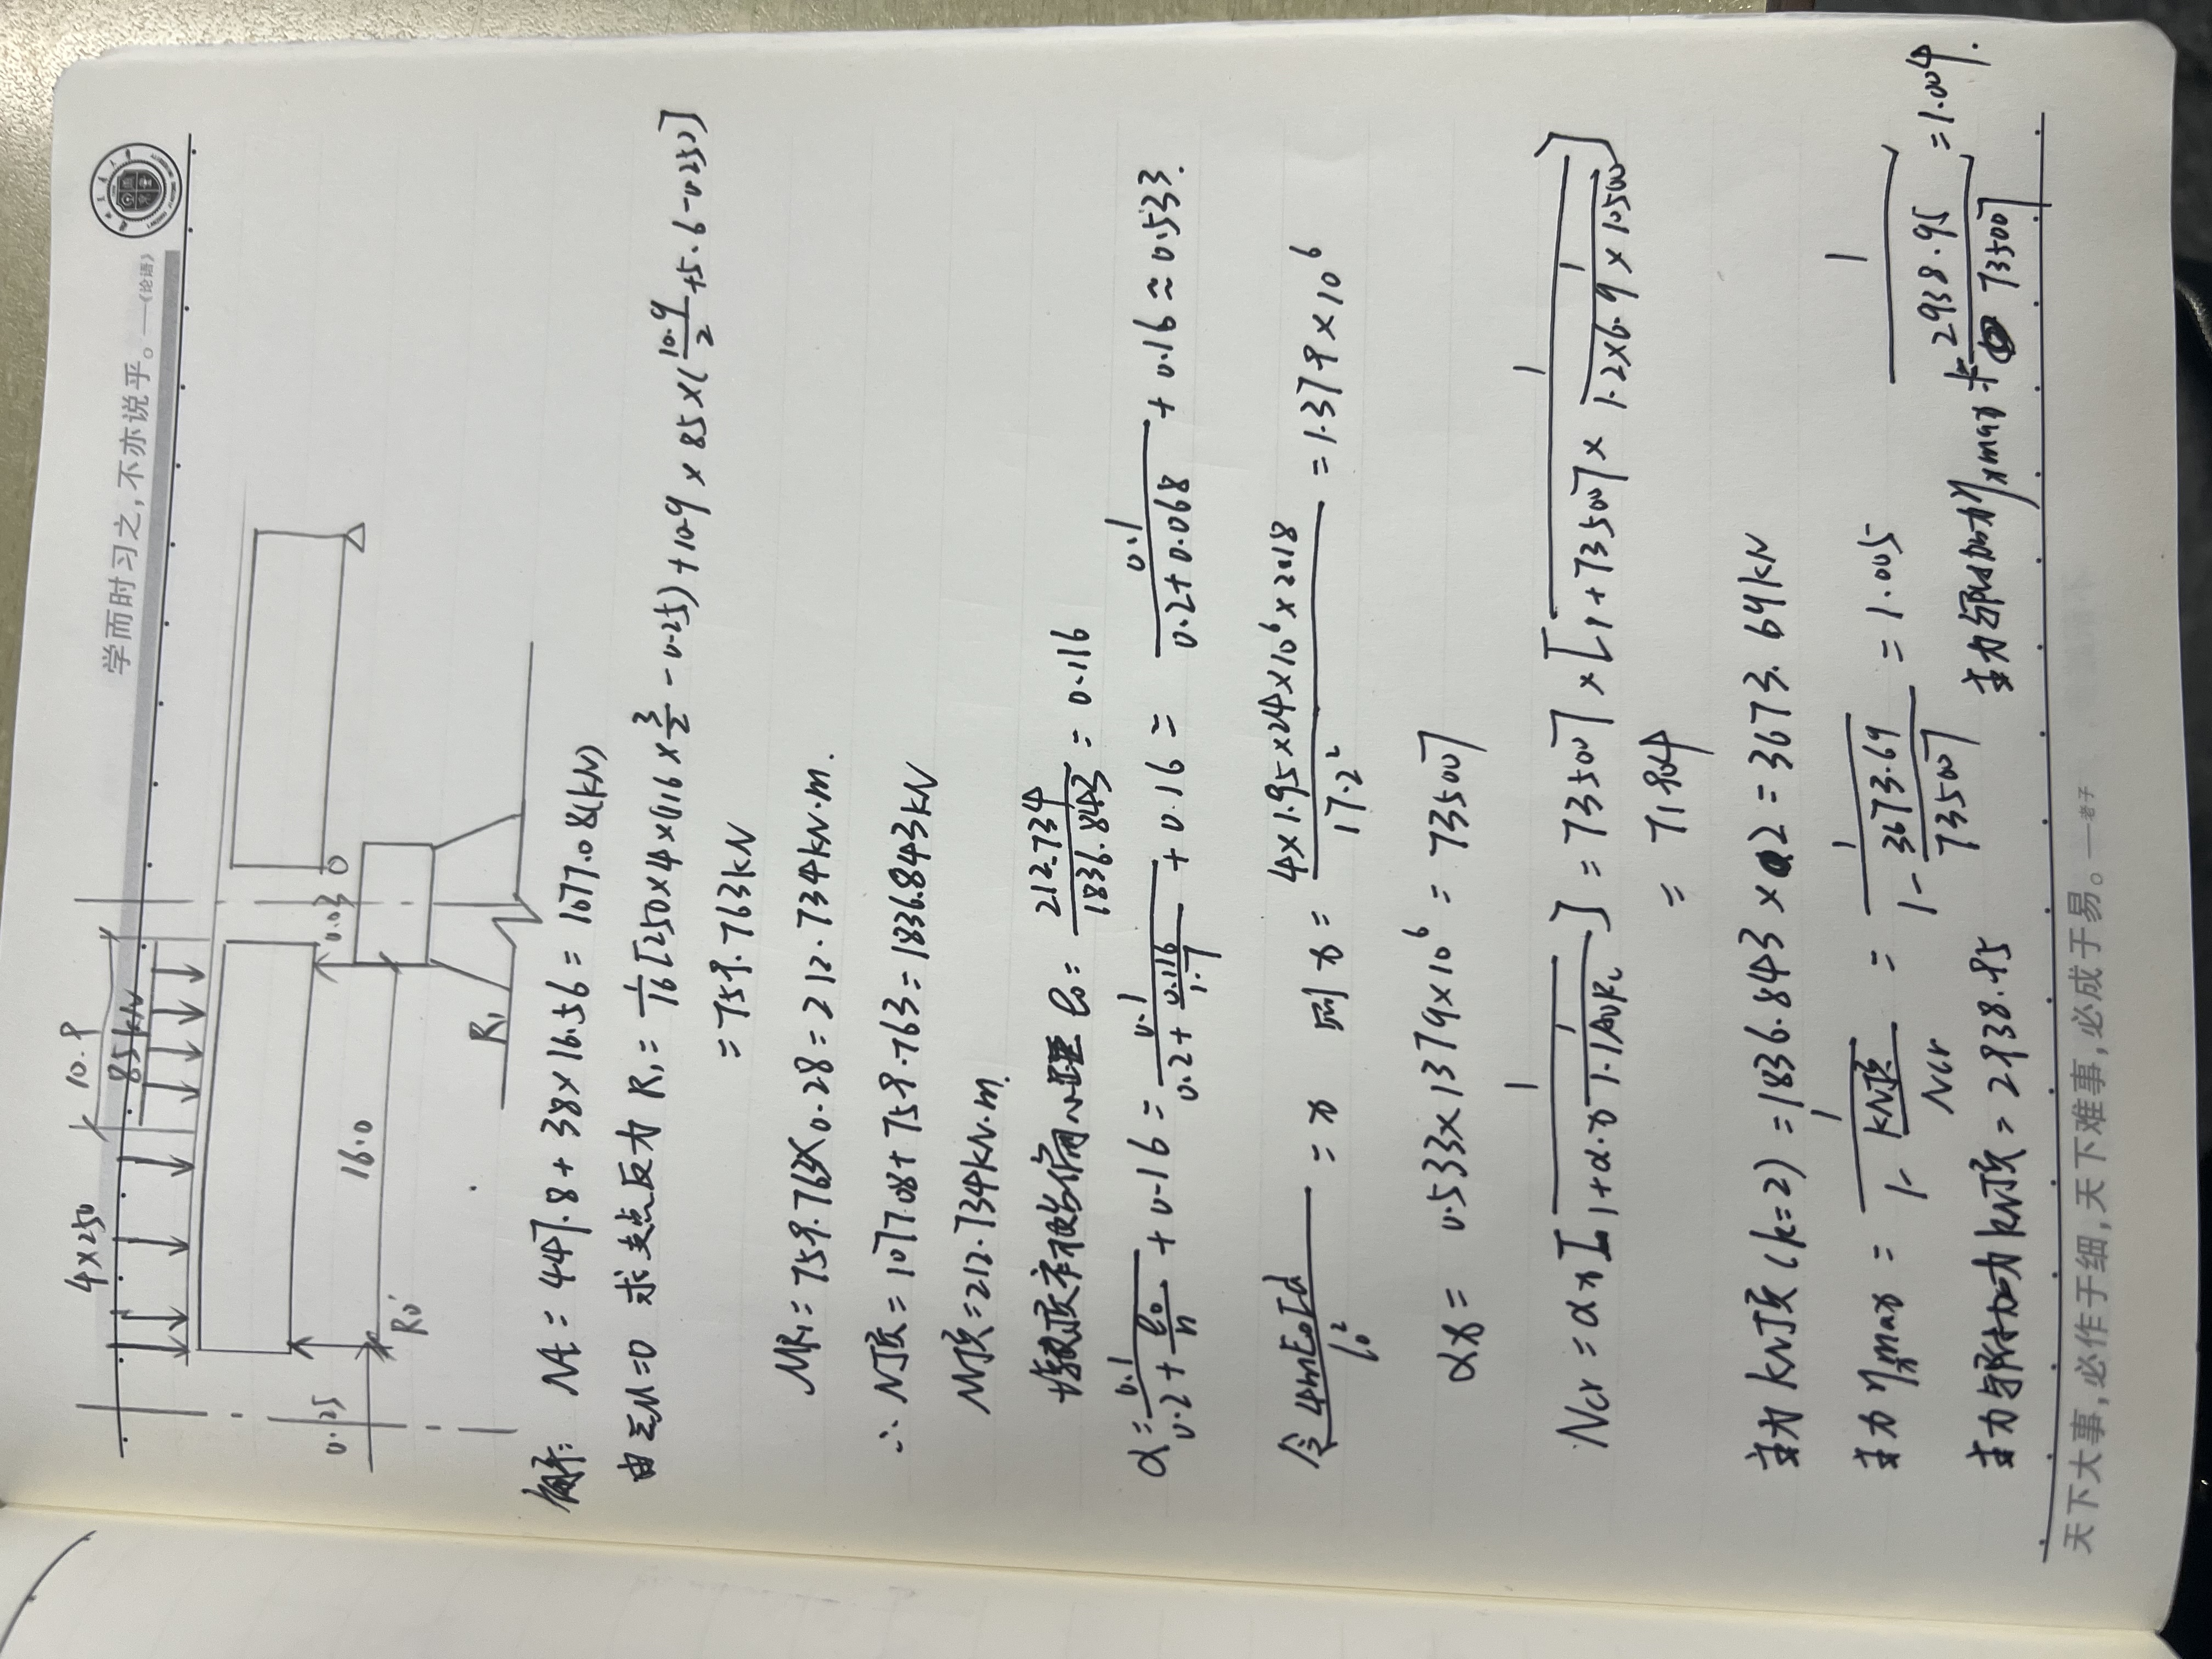 学而时习之，不亦说乎。——《论语》
4×250
10.9
85kN
0.25
16.0
0.03
R₀'
R₁
解: Nt = 447.8 + 38×16.56 = 1077.08(kN)
由ΣM=0 求支点反力 R₁ = 1/16[250×4×(1.6×3/2-0.25)+10.9×85×(10.9/2+5.6-0.25)]
=759.763kN
MR₁=759.763×0.28=212.734kN·m.
∴ N顶=1077.08+759.763=1836.843kN
M顶=212.734kN·m.
墩顶初始偏心距 e₀= 212.734/1836.843 = 0.116
α=0.1/(0.2+e₀/h)+0.16=0.1/(0.2+0.116/1.7)+0.16= 0.1/(0.2+0.068)+0.16≈0.533.
令4mE₀Id/l₀² =x 则x= 4×1.95×24×10⁶×2.18/17.2² =1.379×10⁶
αx= 0.533×1.379×10⁶ = 735007
Ncr=αx[1/(1+α·x 1/1.1A₀Rc)] =735007×[1/(1+735007× 1/1.2×6.9×10500)]
= 71904
主力 kN顶(k=2)=1836.843×2=3673.69kN
主力ηxmax = 1/(1-kN顶/Ncr) = 1/(1-3673.69/735007) =1.005
主力与附加力kN顶=2938.95
主力与附加力ηxmax 1/(1-2938.95/735007) =1.004.
天下大事，必作于细，天下难事，必成于易。——老子